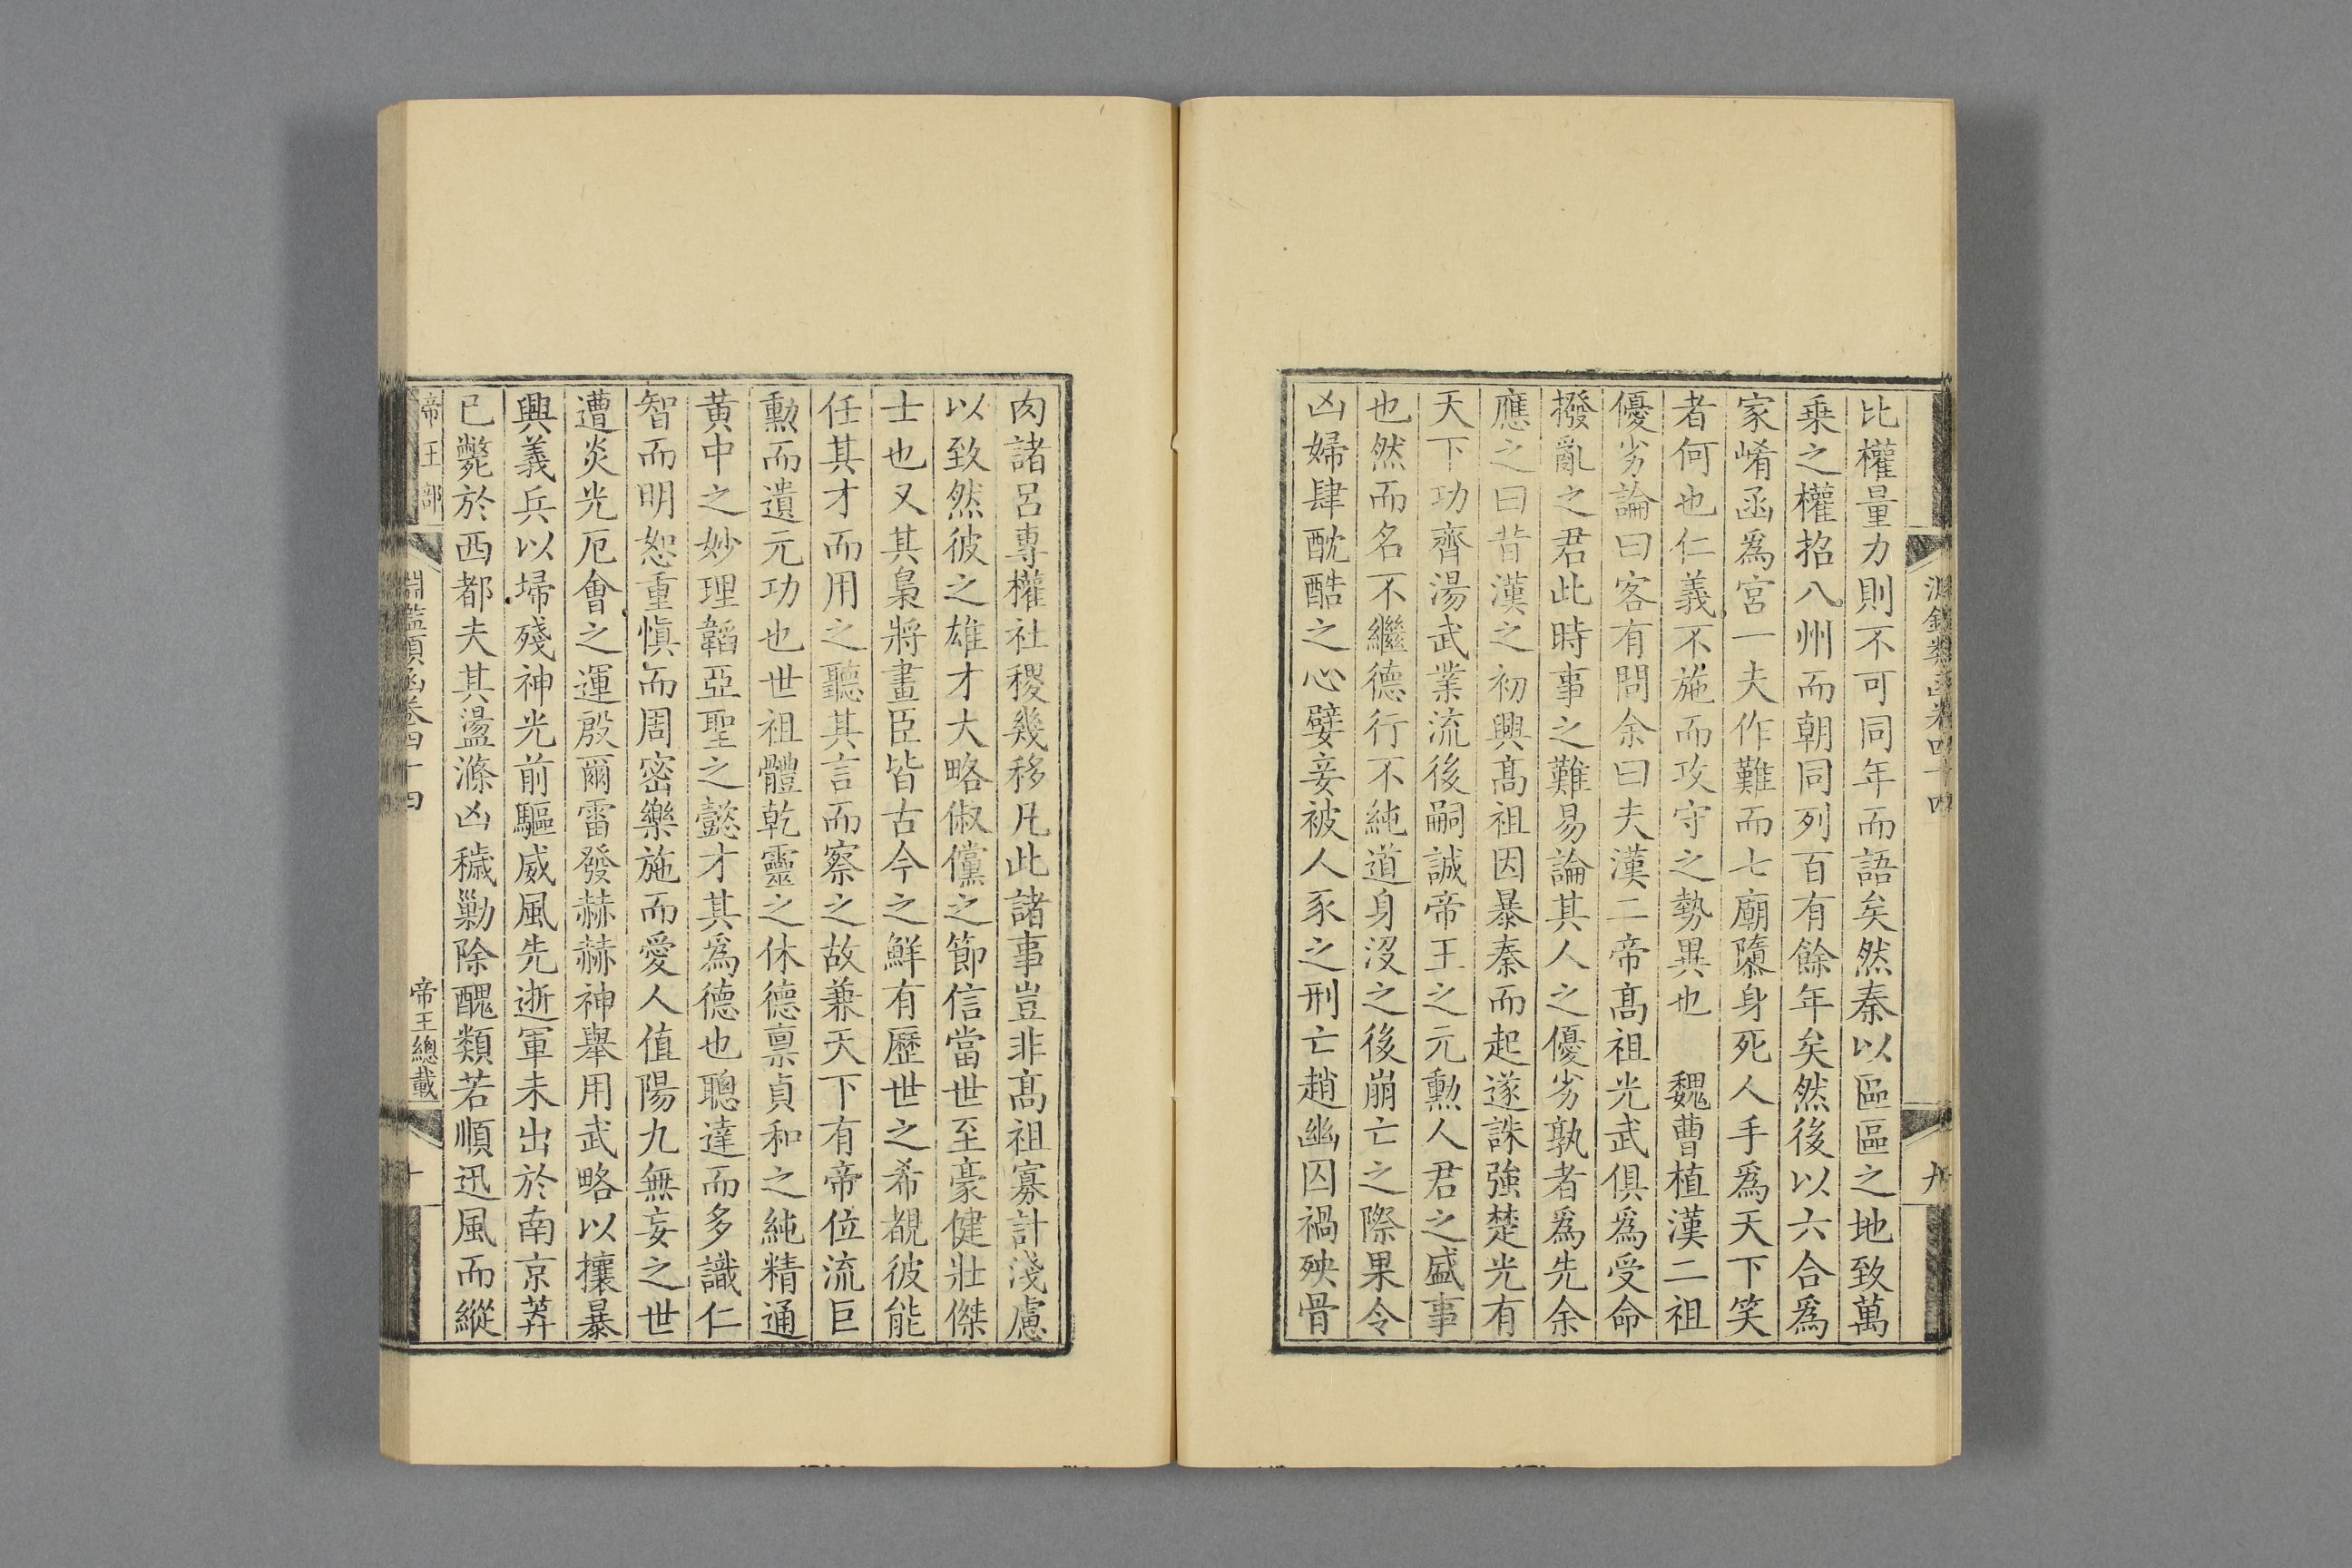 淵鑑類函卷四十四
九
比權量力則不可同年而語矣然秦以區區之地致萬
乗之權招八州而朝同列百有餘年矣然後以六合爲
家崤函爲宮一夫作難而七廟隳身死人手爲天下笑
者何也仁義不施而攻守之勢異也　魏曹植漢二祖
優劣論曰客有問余曰夫漢二帝髙祖光武俱爲受命
撥亂之君此時事之難易論其人之優劣孰者爲先余
應之曰昔漢之初興髙祖因暴秦而起遂誅強楚光有
天下功齊湯武業流後嗣誠帝王之元勲人君之盛事
也然而名不繼德行不純道身沒之後崩亡之際果令
凶婦肆酖酷之心嬖妾被人豕之刑亡趙幽囚禍殃骨
肉諸呂專權社稷幾移凡此諸事豈非髙祖寡計淺慮
以致然彼之雄才大略俶儻之節信當世至豪健壯傑
士也又其梟將畫臣皆古今之鮮有歷世之希覩彼能
任其才而用之聽其言而察之故兼天下有帝位流巨
勲而遺元功也世祖體乾靈之休德禀貞和之純精通
黄中之妙理韜亞聖之懿才其爲德也聰達而多識仁
智而明恕重慎而周密樂施而愛人值陽九無妄之世
遭炎光厄會之運殷爾雷發赫赫神舉用武略以攘暴
興義兵以埽殘神光前驅威風先逝軍未出於南京莽
已斃於西都夫其盪滌凶穢勦除醜類若順迅風而縱
帝王部
淵鑑類函卷四十四
帝王總載
十